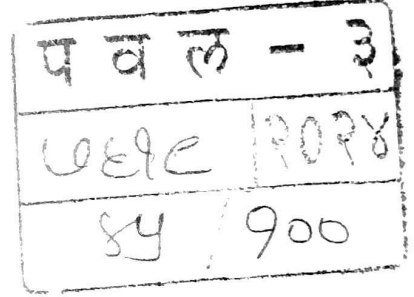 प व ल - ३
७६१८ २०२४
४५ / १००